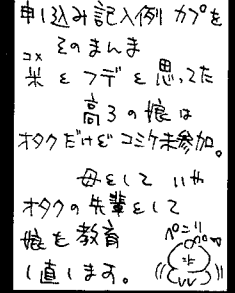 申し込み記入例 カプを
そのまんま
コメ
米とフデと思ってた
高3の娘は
オタクだけどコミケ未参加。
母として いや
オタクの先輩として
娘を教育
し直します。
ペコリ